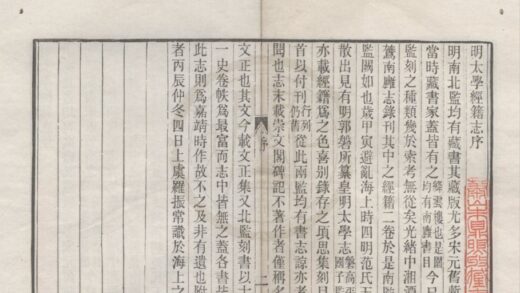 明太學經籍志序
明南北監均有藏書其藏版尤多宋元舊
當時藏書家蓋皆有之
監刻之種類幾於索考無從矣光緒中湘
黌南雝志錄刊其中之經籍二卷於是南
監闕如也歲甲寅避亂海上時四明范氏
散出見有明郭磐所纂皇明太學志
亦載經籍爲之色喜別錄存之頃思集刻
首以付刊行列仍舊從此兩監均有書志諒亦考
聞也志末載崇文閣碑記不著作者僅稱
文正也其文今載文正集又北監刻書以
一史卷帙爲最富而志中皆無之蓋各書
此志則爲嘉靖時作故不之及非有遺也
者丙辰仲冬四日上虞羅振常識於海上之
序